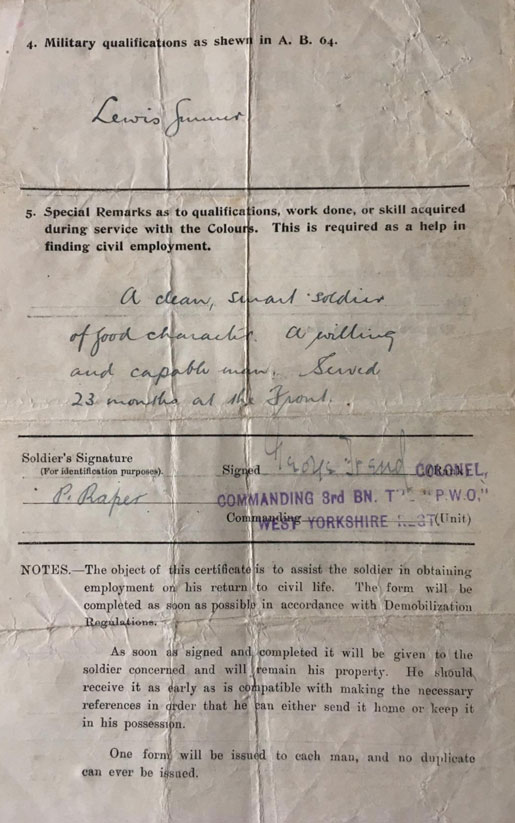 4. Military qualifications as shewn in A. B. 64.
Lewis Gunner
5. Special Remarks as to qualifications, work done, or skill acquired
during service with the Colours. This is required as a help in
finding civil employment.
A clean, smart soldier
of good character. A willing
and capable man. Served
23 months at the Front.
Soldier's Signature
(For identification purposes).
P. Raper
Signed
COLONEL,
COMMANDING 3rd BN. "P.W.O,"
Commanding (Unit)
WEST YORKSHIRE
NOTES.—The object of this certificate is to assist the soldier in obtaining
employment on his return to civil life. The form will be
completed as soon as possible in accordance with Demobilization
Regulations.
As soon as signed and completed it will be given to the
soldier concerned and will remain his property. He should
receive it as early as is compatible with making the necessary
references in order that he can either send it home or keep it
in his possession.
One form will be issued to each man, and no duplicate
can ever be issued.